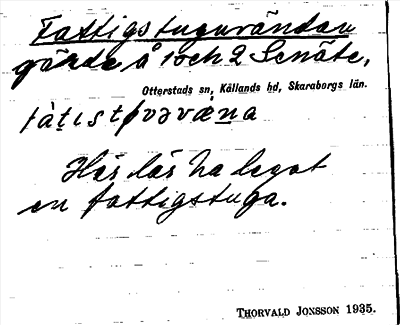 Fattigstuguvändan
gärde å 1 och 2 Senäte,
Otterstads sn, Kållands hd, Skaraborgs län.
Här lär ha legat
en fattigstuga.
THORVALD JONSSON 1935.